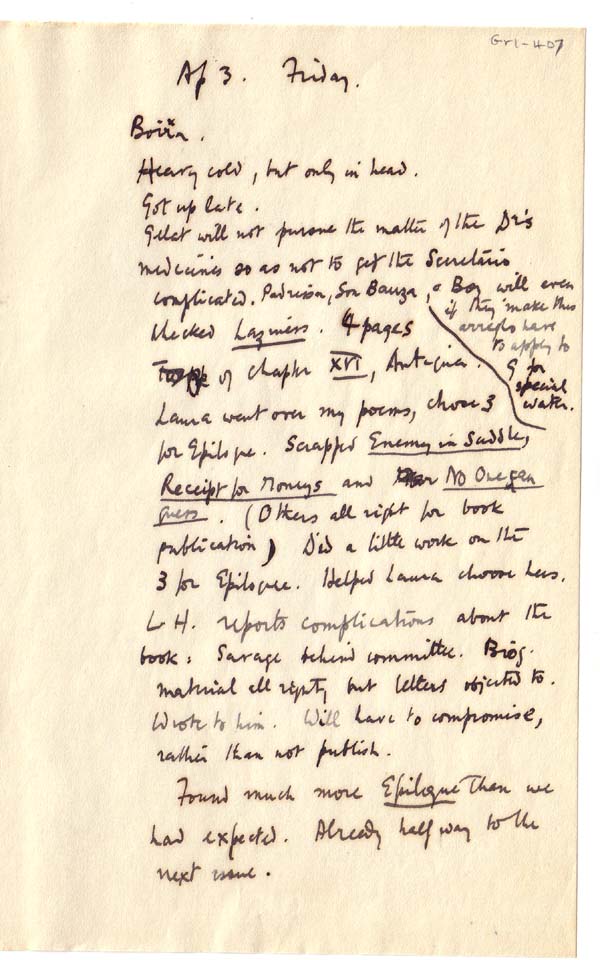 Gr1-407
Ap 3. Friday.
Heavy cold, but only in head.
Got up late.
Gelat will not pursue the matter of the Dr's
medicines so as not to get the Secretario
complicated. Padrissa, Son Bauza, a Boy will even
if they make this
arreglo have
to apply to
G for
special
water.
checked Laziness. 4 pages
of chapter XVI, Antigua.
Laura went over my poems, chose 3
for Epilogue. Scrapped Enemy in Saddle,
Receipt for Moneys and No One can
guess. (Others all right for book
publication) Did a little work on the
3 for Epilogue. Helped Laura choose hers.
L H. reports complications about the
book: Savage behind committee. Biog.
material all right, but letters objected to.
Wrote to him. Will have to compromise,
rather than not publish.
Found much more Epilogue than we
had expected. Already half way to the
next issue.